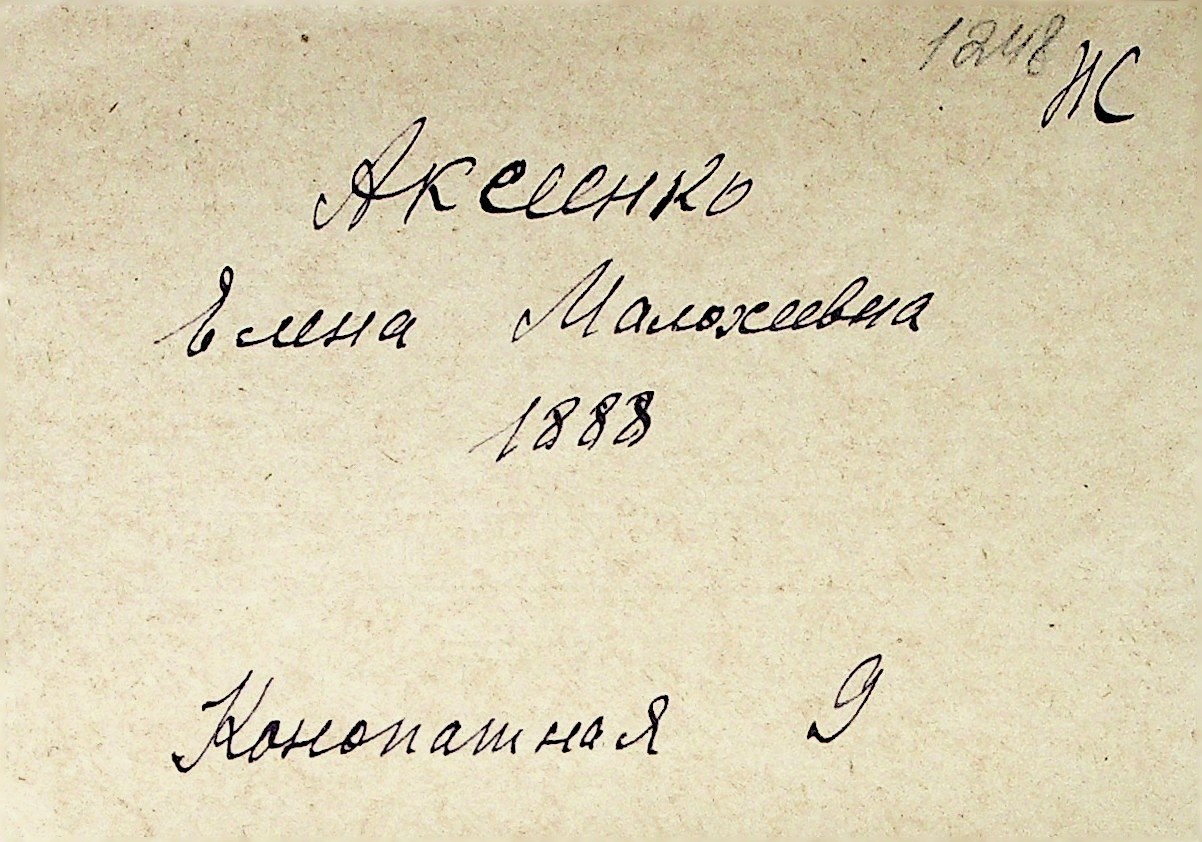 1248
Аксеенко
Елена Малохеевна
1888
Конопатная 9